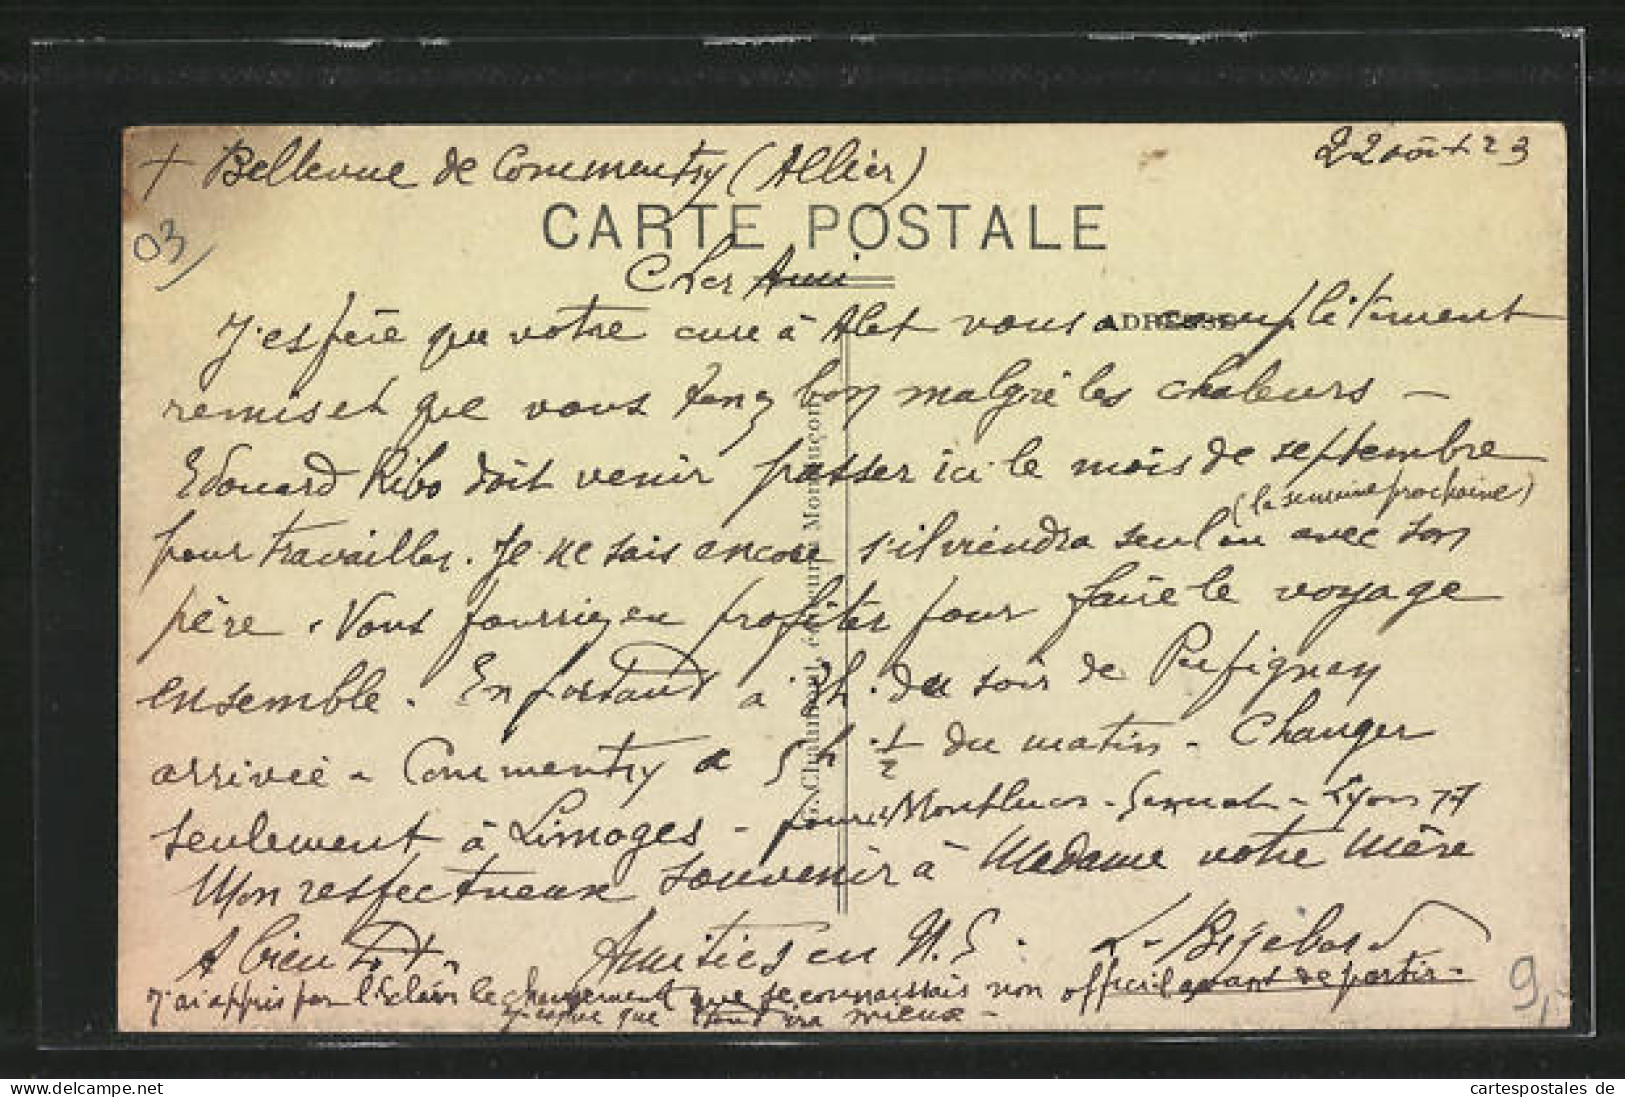 + Bellevue de Commentry (Allier)
22 août 23
03
CARTE POSTALE
Cher Ami
ADRESSE
J'espère que votre cure à Alet vous a complètement
remis et que vous tenez bon malgré les chaleurs –
Edouard Ribo doit venir passer ici le mois de septembre
(la semaine prochaine)
pour travailler. Je ne sais encore s'il viendra seul ou avec son
père. Vous pourriez en profiter pour faire le voyage
ensemble. En partant à 3h. du soir de
arrivée à Commentry à 5 h 1/2 du matin – Changer
seulement à Limoges – pour Montlucon – Gannat – Lyon
Mon respectueux souvenir à Madame votre Mère
A bientôt. Amitiés en N.S.
J'ai appris par l'Eclair le changement que je connaissais non officiel avant de partir –
J'espère que tout ira mieux –
édit. Montluçon
9,-
cartespostales de